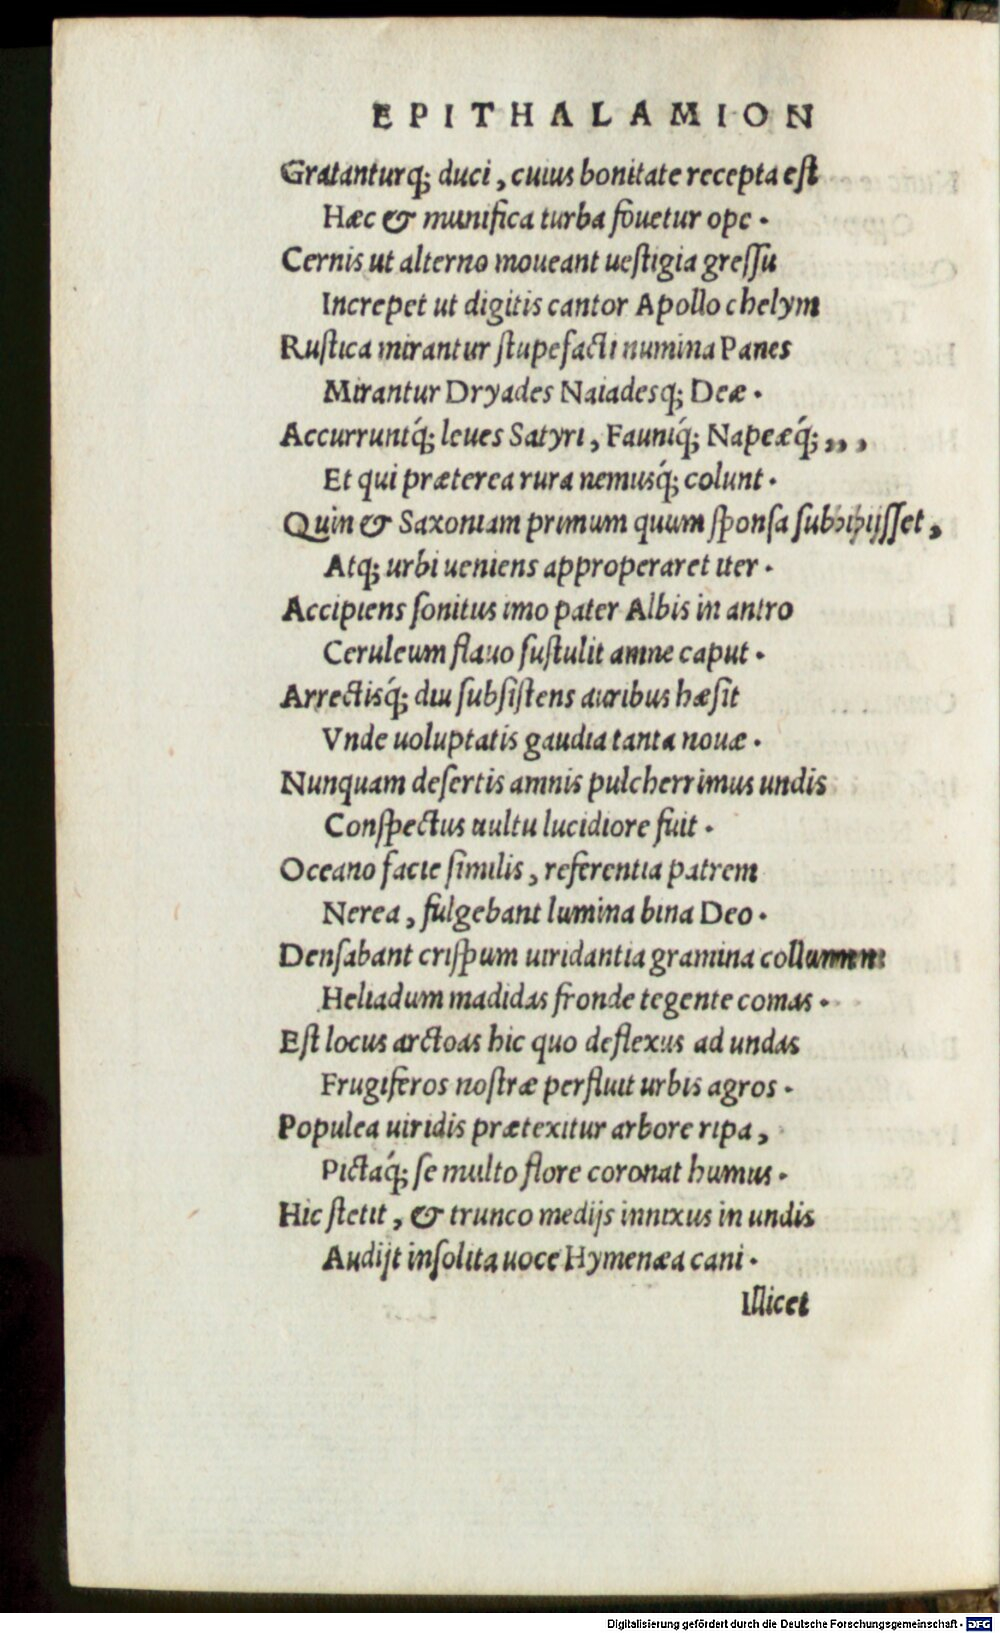 EPITHALAMION
Gratanturq́; duci, cuius bonitate recepta est
Hæc & munifica turba fouetur ope.
Cernis ut alterno moueant uestigia gressu
Increpet ut digitis cantor Apollo chelym
Rustica mirantur stupefacti numina Panes
Mirantur Dryades Naiadesq; Deæ.
Accurruntq́; leues Satyri, Fauniq́; Napeæq́;,,,
Et qui præterea rura nemusq́; colunt.
Quin & Saxoniam primum quum sponsa
Atq; urbi ueniens appropreraret iter.
Accipiens sonitus imo pater Albis in antro
Ceruleum flauo sustulit amne caput.
Arrectisq́; diu subsistens auribus hæsit
Vnde uoluptatis gaudia tanta nouæ.
Nunquam desertis amnis pulcherrimus undis
Conspectus uultu lucidiore fuit.
Oceano facie similis, referentia patrem
Nerea, fulgebant lumina bina Deo.
Densabant crispum uiridantia gramina
Heliadum madidas fronde tegente comas.
Est locus arctoas hic quo deflexus ad undas
Frugiferos nostræ perfluit urbis agros.
Populea uiridis prætexitur arbore ripa,
Pictaq́; se multo flore coronat humus.
Hic stetit, & trunco medijs innixus in undis
Audijt insolita uoce Hymenæa cani.
Illicet
Digitalisierung gefördert durch die Deutsche Forschungsgemeinschaft - DFG